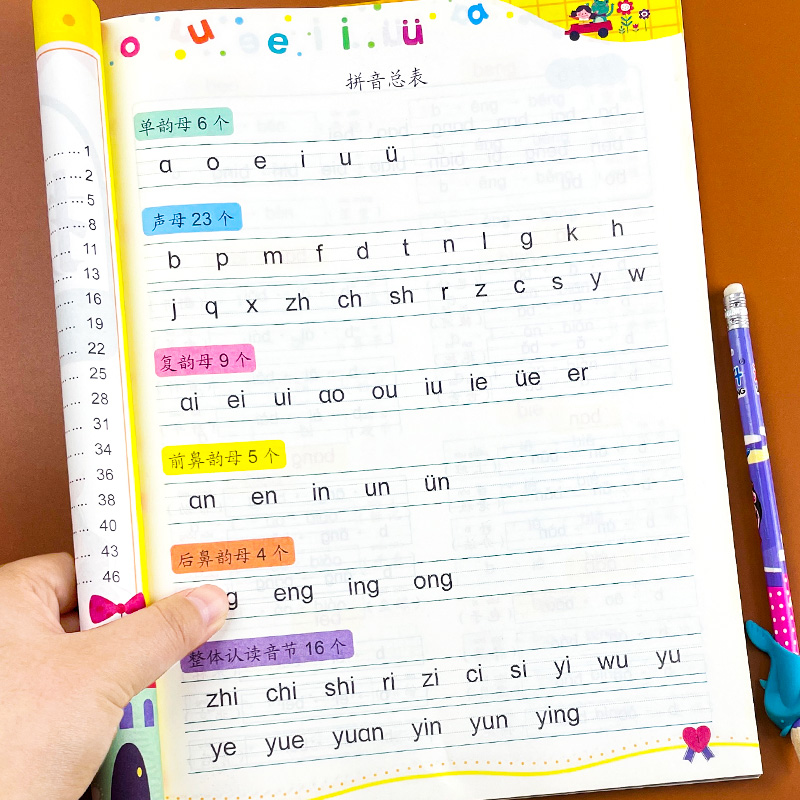 o u e e i ü a
拼音总表
单韵母 6 个
a o e i u ü
声母 23 个
b p m f d t n l g k h
j q x zh ch sh r z c s y w
复韵母 9 个
ai ei ui ao ou iu ie üe er
前鼻韵母 5 个
an en in un ün
后鼻韵母 4 个
g eng ing ong
整体认读音节 16 个
zhi chi shi ri zi ci si yi wu yu
ye yue yuan yin yun ying
1
2
5
8
11
13
16
19
22
25
28
31
34
36
38
40
43
46